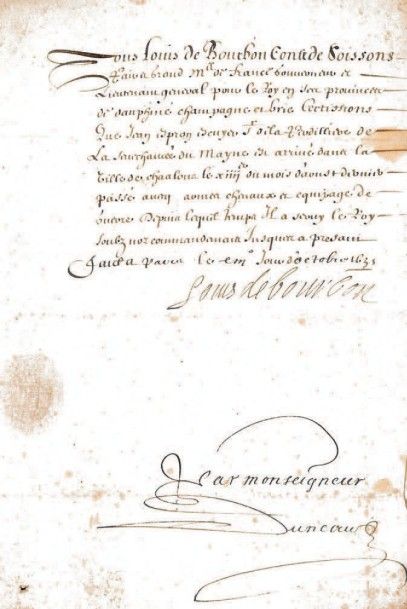 Nous Louis de Bourbon Conte de Soissons
Pair et Grand Mre de France Gouverneur et
Lieutenant general pour le Roy en ses provinces
de dauphiné champagne et brie Certissions
Que Jean escuyer Sr de la de
La du Mayne est arrivé dans la
Ville de chaalons le xiiije du mois daoust dernier
passé avecq armes chevaux et equipage de
Guerre Depuis lequel temps Il a servy le Roy
soubz noz commandemens Jusques a presant
Faict a Paris le Jour d'octobre 1631
Louis de bourbon
Par monseigneur